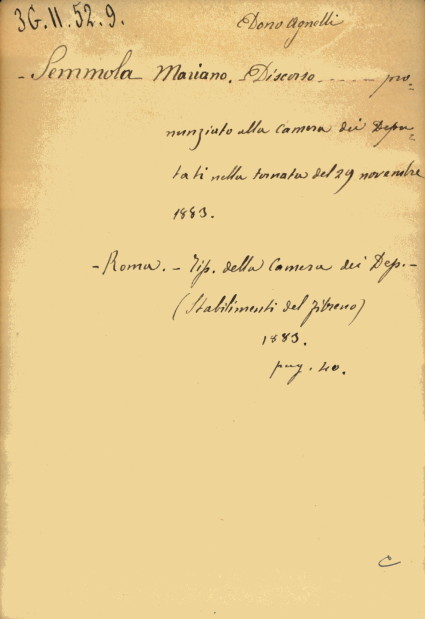 3G.11.52.9.
Dono Agnelli
- Semmola Mariano. - Discorso ------ pro=
nunziato alla Camera dei Depu=
tati nella tornata del 29 novembre
1883.
- Roma. - Tip. della Camera dei Dep. -
(Stabilimenti del Fibreno)
1883.
pag. 40.
C